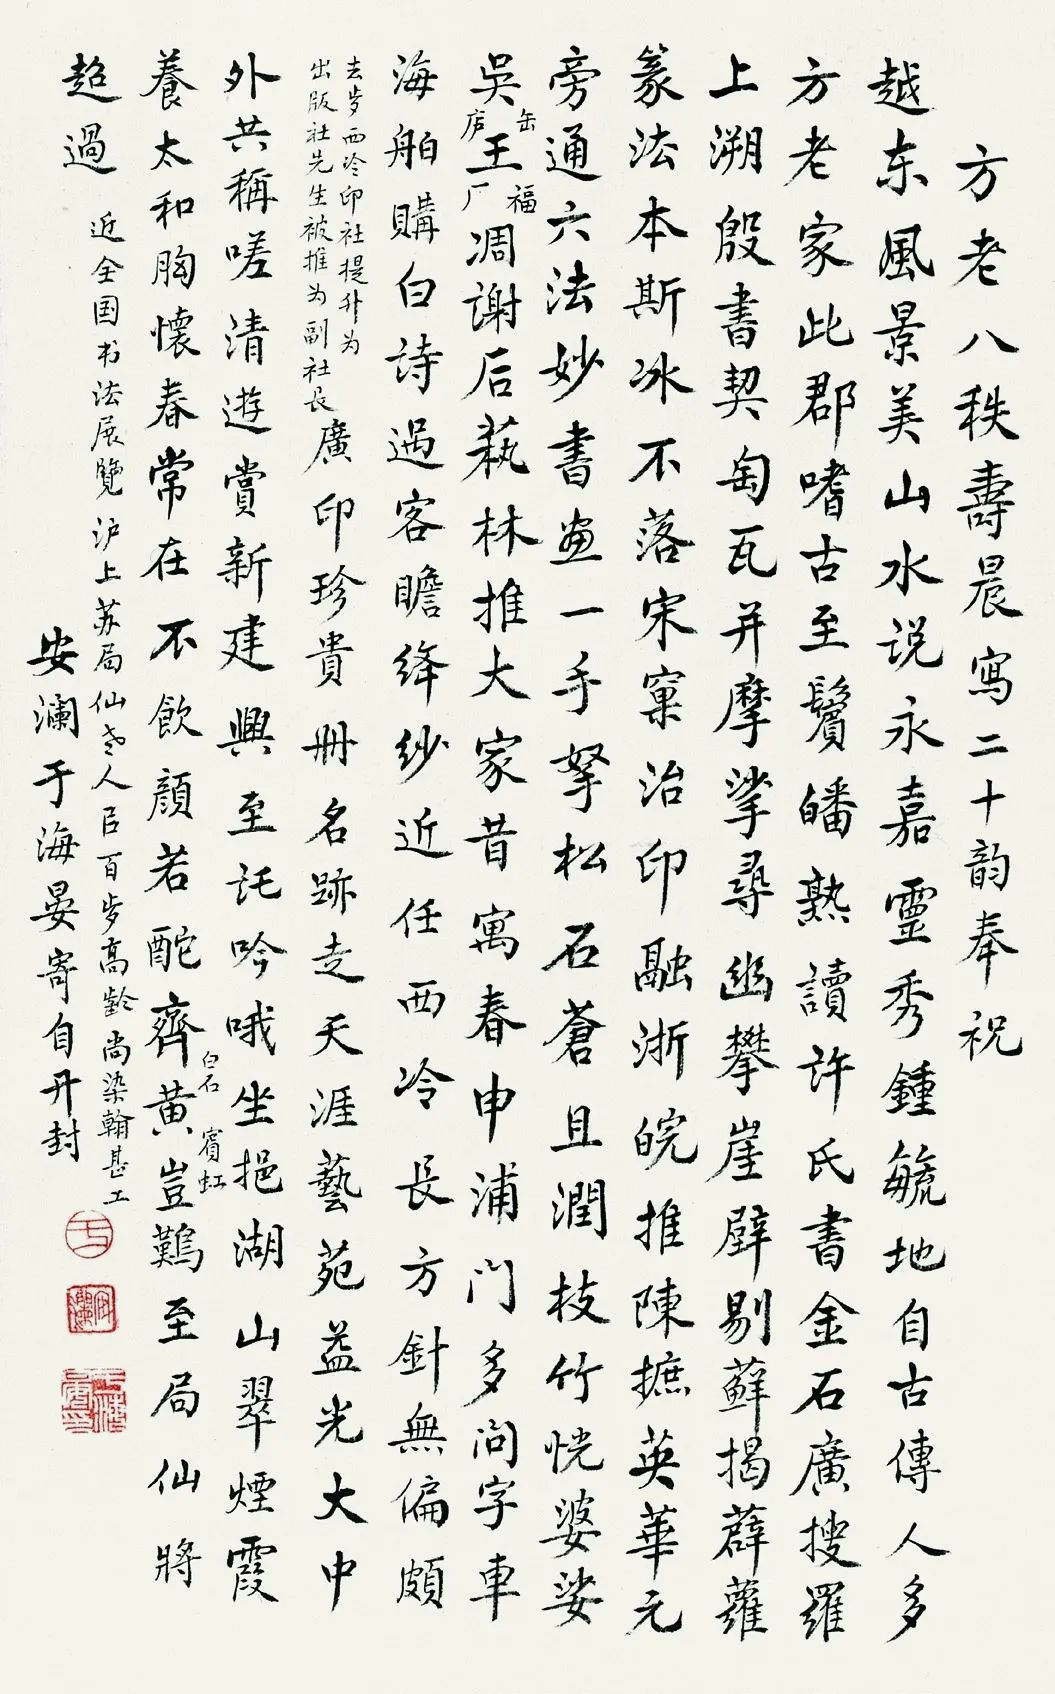 方老八秩壽晨寫二十韵奉祝
越东風景美山水说永嘉靈秀鍾毓地自古傳人多
方老家此郡嗜古至鬢皤熟讀许氏書金石廣搜羅
上溯殷書契匋瓦并摩挲尋幽攀崖壁剔蘚揭薜蘿
篆法本斯冰不落宋窠治印融浙皖推陳摭英華元
旁通六法妙書画一手拏松石蒼且潤枝竹恍婆娑
吳缶庐王福厂凋谢后蓺林推大家昔寓春申浦门多问字車
海舶購白诗過客瞻绛纱近任西冷長方針無偏頗
去岁西冷印社提升为
出版社先生被推为副社長廣印珍貴册名跡走天涯藝苑益光大中
外共稱嗟清遊賞新建興至託吟哦坐挹湖山翠煙霞
養太和胸懷春常在不飲顔若酡齊白石黄賓虹豈鷄至局仙將
超過 近全国书法展覽沪上苏局仙老人吕百岁高龄尚染翰甚工
安瀾于海晏寄自开封